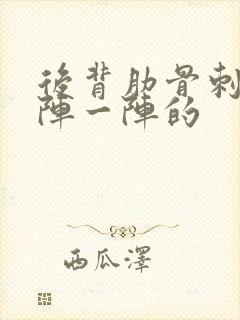 後背肋骨刺
陣一陣的
西瓜澤